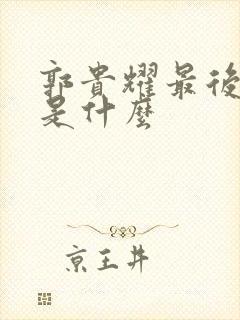 郭貴耀最後
是什麼
京王井